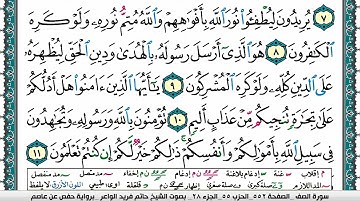 ٧ يُرِيدُونَ لِيُطْفِـُٔوا۟ نُورَ ٱللَّهِ بِأَفْوَٰهِهِمْ وَٱللَّهُ مُتِمُّ نُورِهِۦ وَلَوْ كَرِهَ
ٱلْكَٰفِرُونَ ٨ هُوَ ٱلَّذِىٓ أَرْسَلَ رَسُولَهُۥ بِٱلْهُدَىٰ وَدِينِ ٱلْحَقِّ لِيُظْهِرَهُۥ
عَلَى ٱلدِّينِ كُلِّهِۦ وَلَوْ كَرِهَ ٱلْمُشْرِكُونَ ٩ يَٰٓأَيُّهَا ٱلَّذِينَ ءَامَنُوا۟ هَلْ أَدُلُّكُمْ
عَلَىٰ تِجَٰرَةٍ تُنجِيكُم مِّنْ عَذَابٍ أَلِيمٍ ١٠ تُؤْمِنُونَ بِٱللَّهِ وَرَسُولِهِۦ وَتُجَٰهِدُونَ
فِى سَبِيلِ ٱللَّهِ بِأَمْوَٰلِكُمْ وَأَنفُسِكُمْ ذَٰلِكُمْ خَيْرٌ لَّكُمْ إِن كُنتُمْ تَعْلَمُونَ ١١
سورة الصف _ الصفحة ٥٥٢ _ الحزب ٥٥ _ الجزء ٢٨ بصوت الشيخ حاتم فريد الواعر / برواية حفص عن عاصم